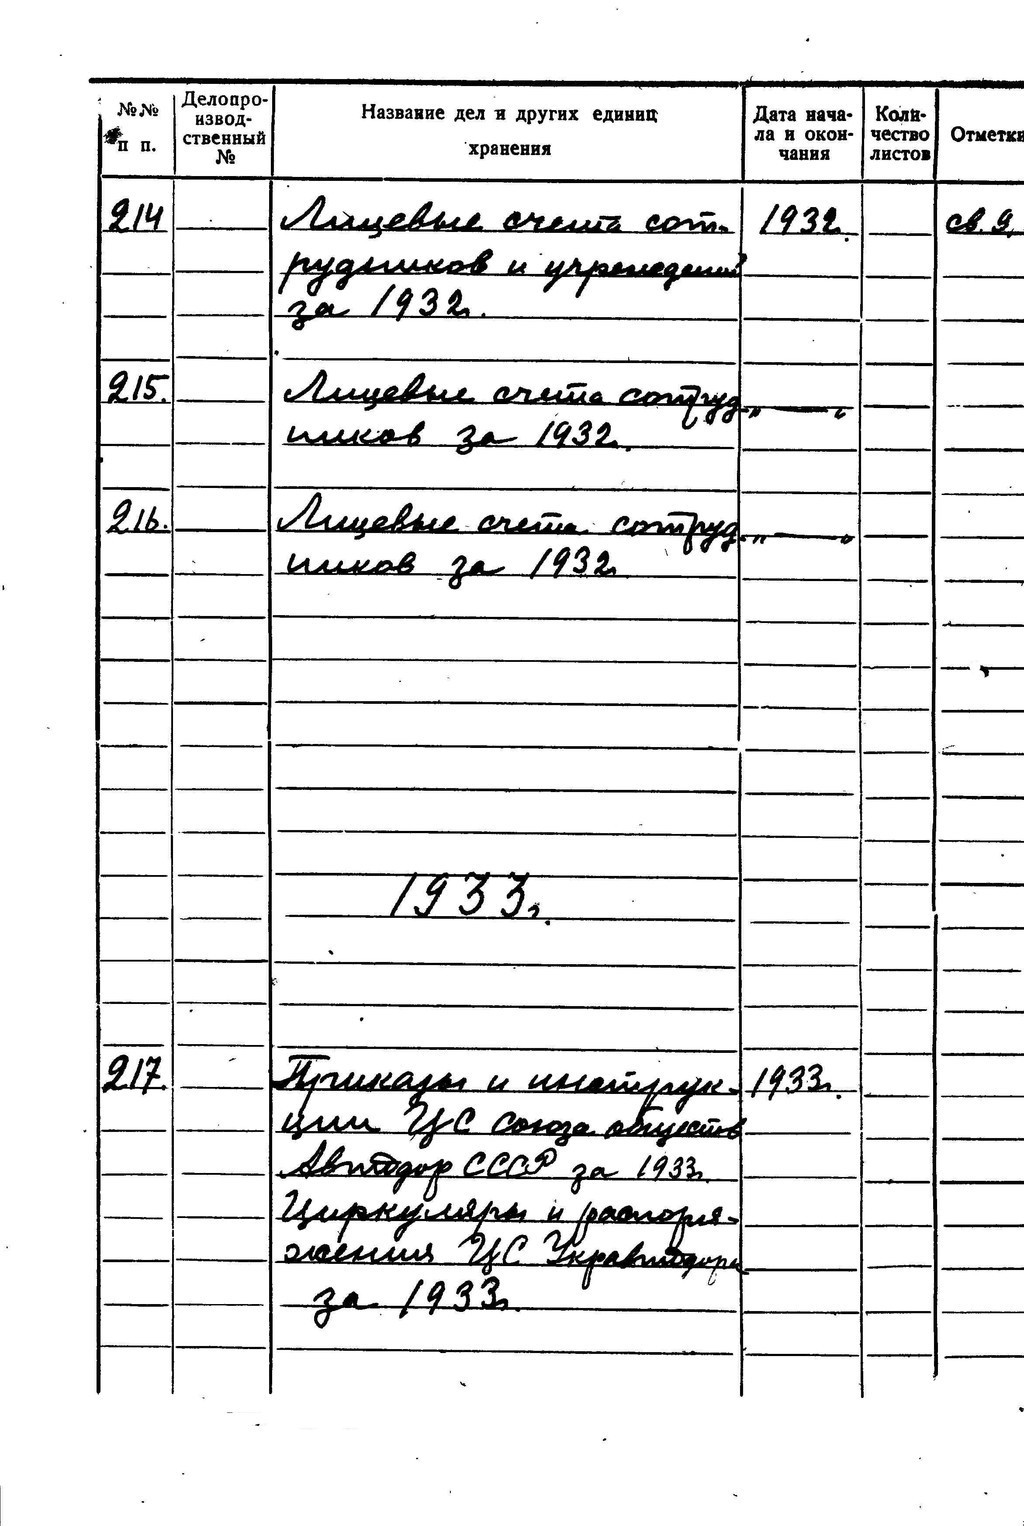 №№ п п.
Делопро-
извод-
ственный
№
Название дел и других единиц
хранения
Дата нача-
ла и окон-
чания
Коли-
чество
листов
Отметки
214 Лицевые счета сот- 1932г. св. 9.
рудников и учреждений
за 1932г.
215. Лицевые счета сотруд- „ — “
ников за 1932г.
216. Лицевые счета сотруд- „ — “
ников за 1932г
1933г.
217. Приказы и инструк- 1933г.
ции ЦС Союза обществ
Автодор СССР за 1933г.
Циркуляры и распоря-
жения ЦС Укравтодора
за 1933г.